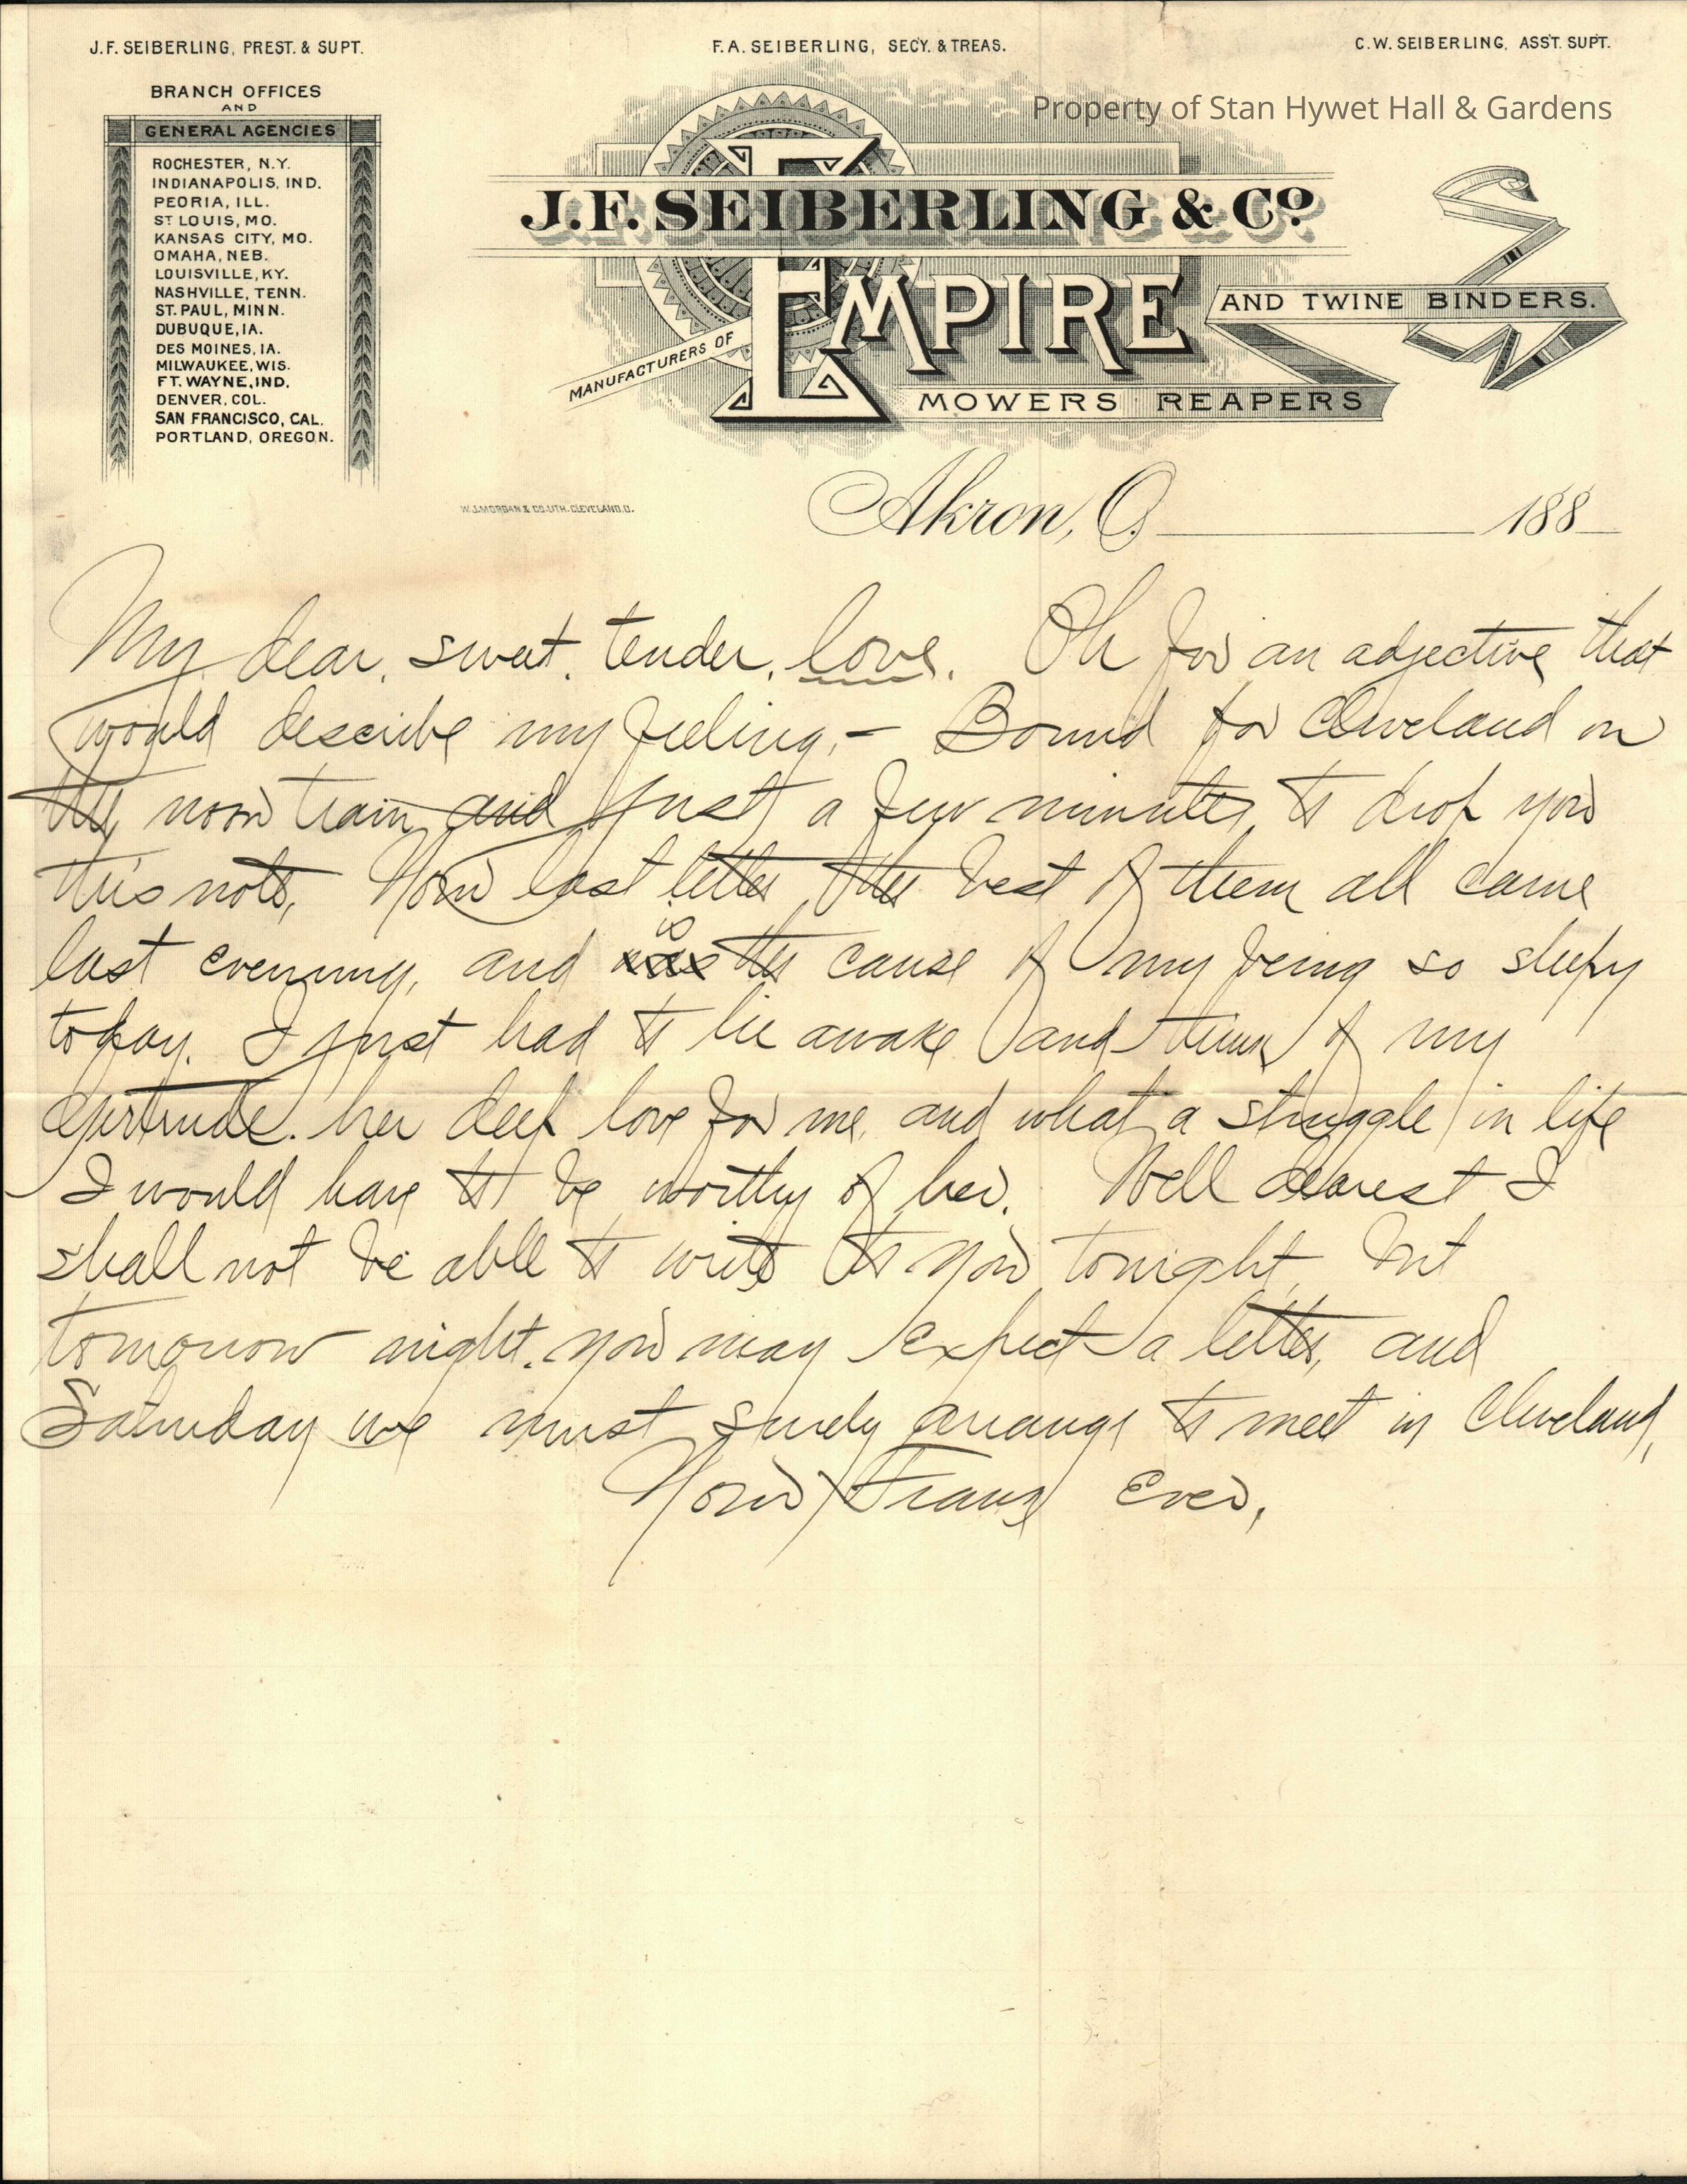 J.F. SEIBERLING, PREST. & SUPT.
F.A. SEIBERLING, SECY. & TREAS.
C.W. SEIBERLING, ASST. SUPT.
BRANCH OFFICES
AND
GENERAL AGENCIES
ROCHESTER, N.Y.
INDIANAPOLIS, IND.
PEORIA, ILL.
ST LOUIS, MO.
KANSAS CITY, MO.
OMAHA, NEB.
LOUISVILLE, KY.
NASHVILLE, TENN.
ST. PAUL, MINN.
DUBUQUE, IA.
DES MOINES, IA.
MILWAUKEE, WIS.
FT. WAYNE, IND.
DENVER, COL.
SAN FRANCISCO, CAL.
PORTLAND, OREGON.
Property of Stan Hywet Hall & Gardens
J.F. SEIBERLING & Co
MANUFACTURERS OF
EMPIRE
AND TWINE BINDERS.
MOWERS REAPERS
W.J. MORGAN & CO. LITH. CLEVELAND, O.
Akron, O. 188
My dear, sweet, tender, love. Oh for an adjective that
would describe my feeling,- Bound for Cleveland on
the noon train and just a few minutes to drop you
this note, Your last letter, the best of them all came
last evening, and was is the cause of my being so sleepy
today. I just had to lie awake and think of my
Gertrude. her deep love for me, and what a struggle in life
I would have to be worthy of her. Well dearest I
shall not be able to write to you tonight, but
tomorrow night, you may expect a letter, and
Saturday we must surely arrange to meet in Cleveland,
Your Frank Ever,